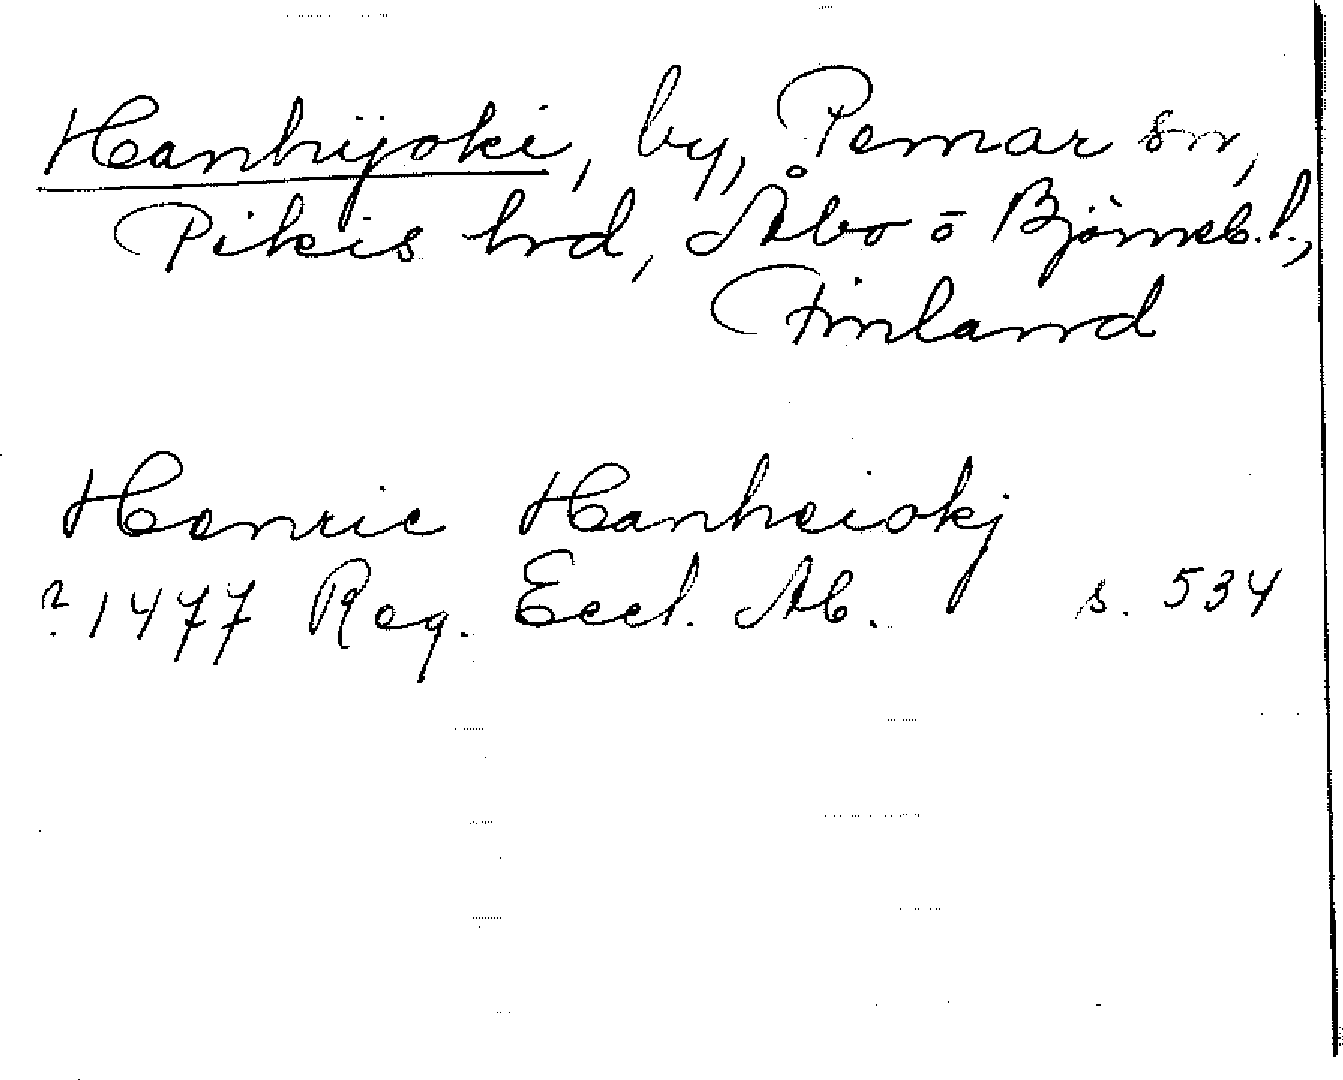 Hanhijoki, by, Pemar sn,
Pikis hrd, Åbo o Björneb. l.,
Finland
Henric Hanheiokj
? 1477 Reg. Eccl. Ab. s. 534